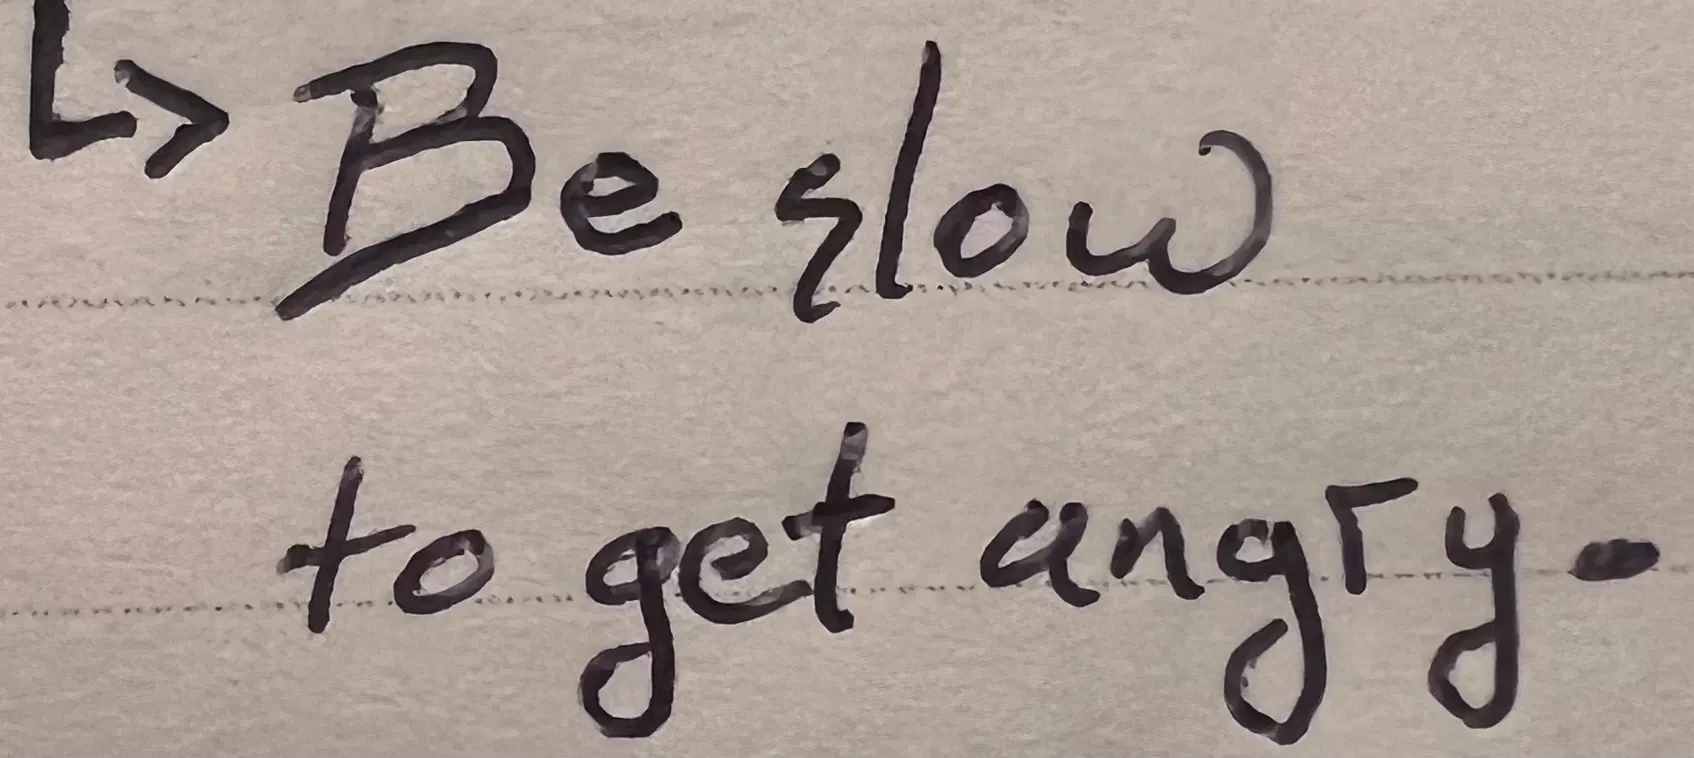 ↳ Be slow
to get angry.